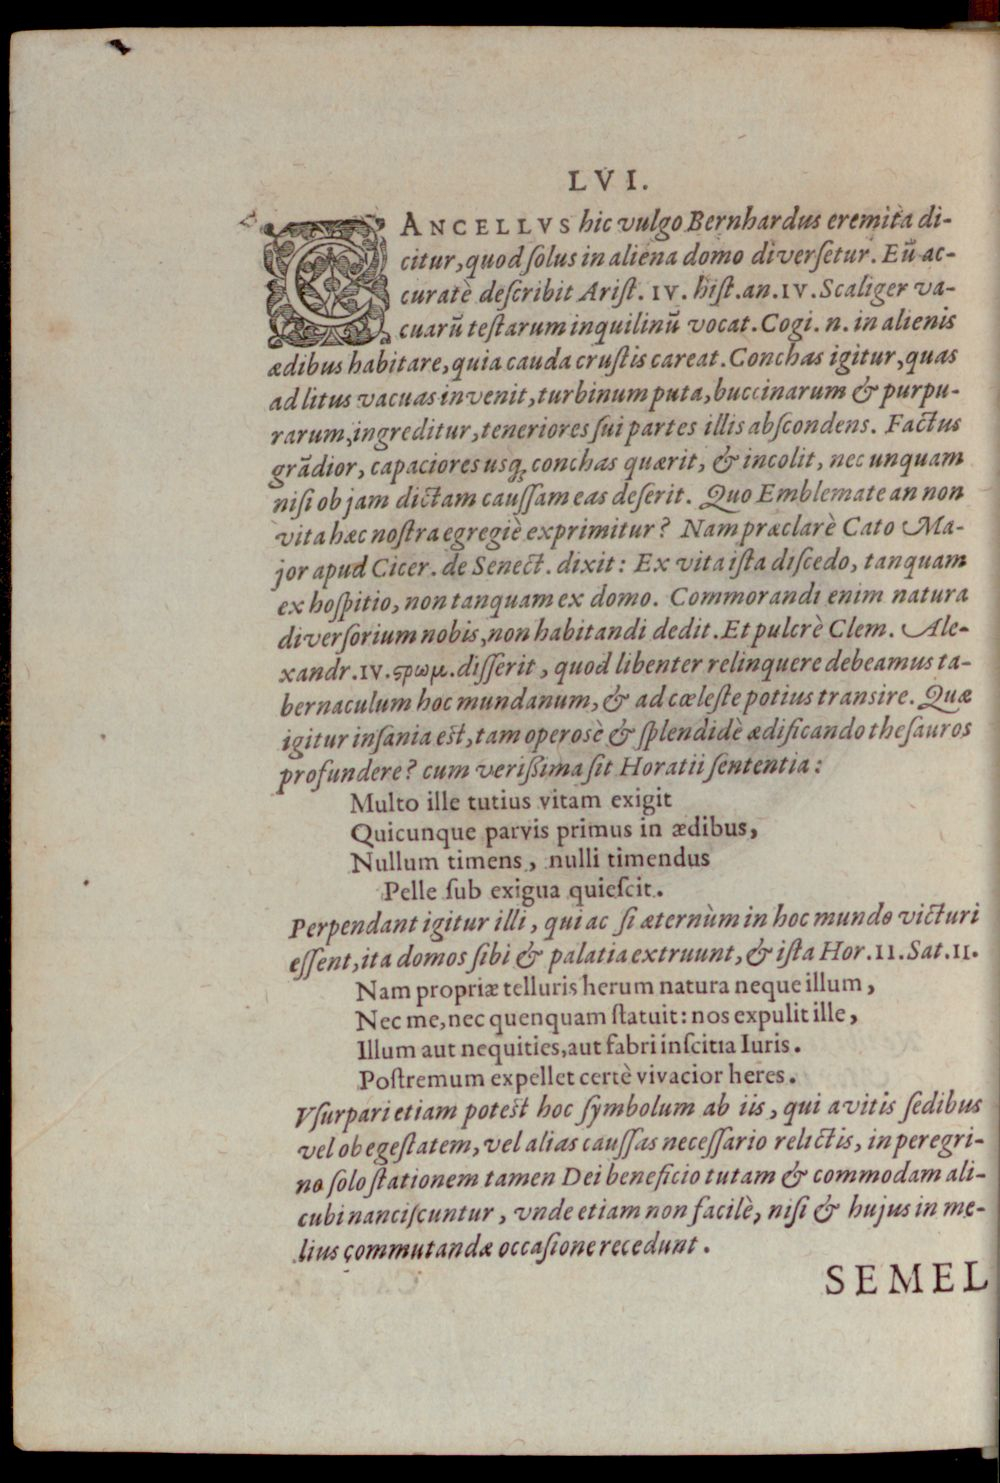 LVI.
CANCELLVS hic vulgo Bernhardus eremita di-
citur, quod ſolus in aliena domo diverſetur. Eũ ac-
curatè deſcribit Ariſt. IV. hiſt. an. IV. Scaliger va-
cuarũ teſtarum inquilinũ vocat. Cogi. n. in alienis
ædibus habitare, quia cauda cruſtis careat. Conchas igitur, quas
ad litus vacuas invenit, turbinum puta, buccinarum & purpu-
rarum, ingreditur, teneriores ſui partes illis abſcondens. Factus
grãdior, capaciores usq; conchas quærit, & incolit, nec unquam
niſi ob jam dictam cauſſam eas deſerit. Quo Emblemate an non
vita hæc noſtra egregiè exprimitur? Nam præclarè Cato Ma-
jor apud Cicer. de Senect. dixit: Ex vita iſta diſcedo, tanquam
ex hoſpitio, non tanquam ex domo. Commorandi enim natura
diverſorium nobis, non habitandi dedit. Et pulcrè Clem. Ale-
xandr. IV. ϛρωμ. diſſerit, quod libenter relinquere debeamus ta-
bernaculum hoc mundanum, & ad cœleſte potius transire. Quæ
igitur inſania est, tam operosè & ſplendidè ædificando theſauros
profundere? cum verißima ſit Horatii ſententia:
Multo ille tutius vitam exigit
Quicunque parvis primus in ædibus,
Nullum timens, nulli timendus
Pelle ſub exigua quieſcit.
Perpendant igitur illi, qui ac ſi æternùm in hoc mundo victuri
eſſent, ita domos ſibi & palatia extruunt, & iſta Hor. II. Sat. II.
Nam propriæ telluris herum natura neque illum,
Nec me, nec quenquam ſtatuit: nos expulit ille,
Illum aut nequities, aut fabri inſcitia Iuris.
Poſtremum expellet certè vivacior heres.
Vſurpari etiam potest hoc ſymbolum ab iis, qui avitis ſedibus
vel ob egeſtatem, vel alias cauſſas neceſſario relictis, in peregri-
no ſolo ſtationem tamen Dei beneficio tutam & commodam ali-
cubi nanciſcuntur, vnde etiam non facilè, niſi & hujus in me-
lius commutandæ occaſione recedunt.
SEMEL